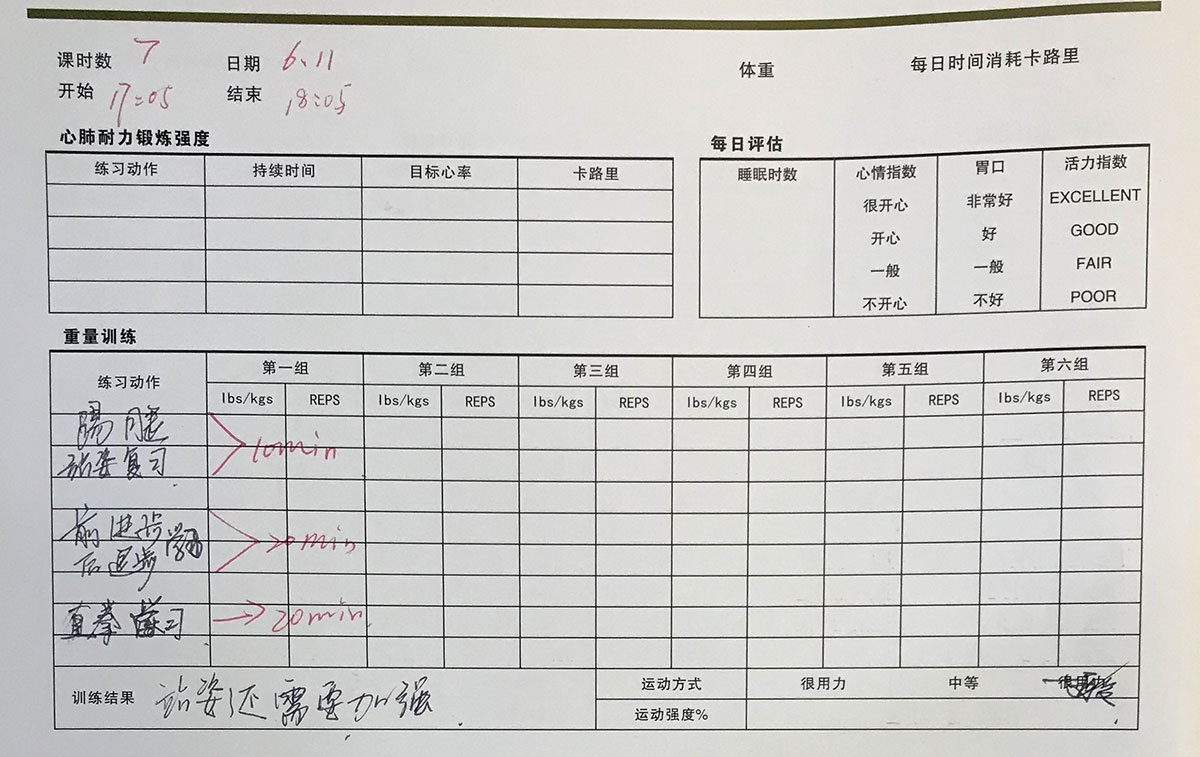 课时数 7 日期 6.11 体重 每日时间消耗卡路里
开始 17:05 结束 18:05
心肺耐力锻炼强度
练习动作 持续时间 目标心率 卡路里
每日评估
睡眠时数 心情指数 胃口 活力指数
很开心 非常好 EXCELLENT
开心 好 GOOD
一般 一般 FAIR
不开心 不好 POOR
重量训练
练习动作 第一组 第二组 第三组 第四组 第五组 第六组
lbs/kgs REPS lbs/kgs REPS lbs/kgs REPS lbs/kgs REPS lbs/kgs REPS lbs/kgs REPS
踢腿
站姿复习 10min
前进步
后退步 学习 20min
直拳 习 20min
训练结果 站姿还需要加强
运动方式 很用力 中等
运动强度%